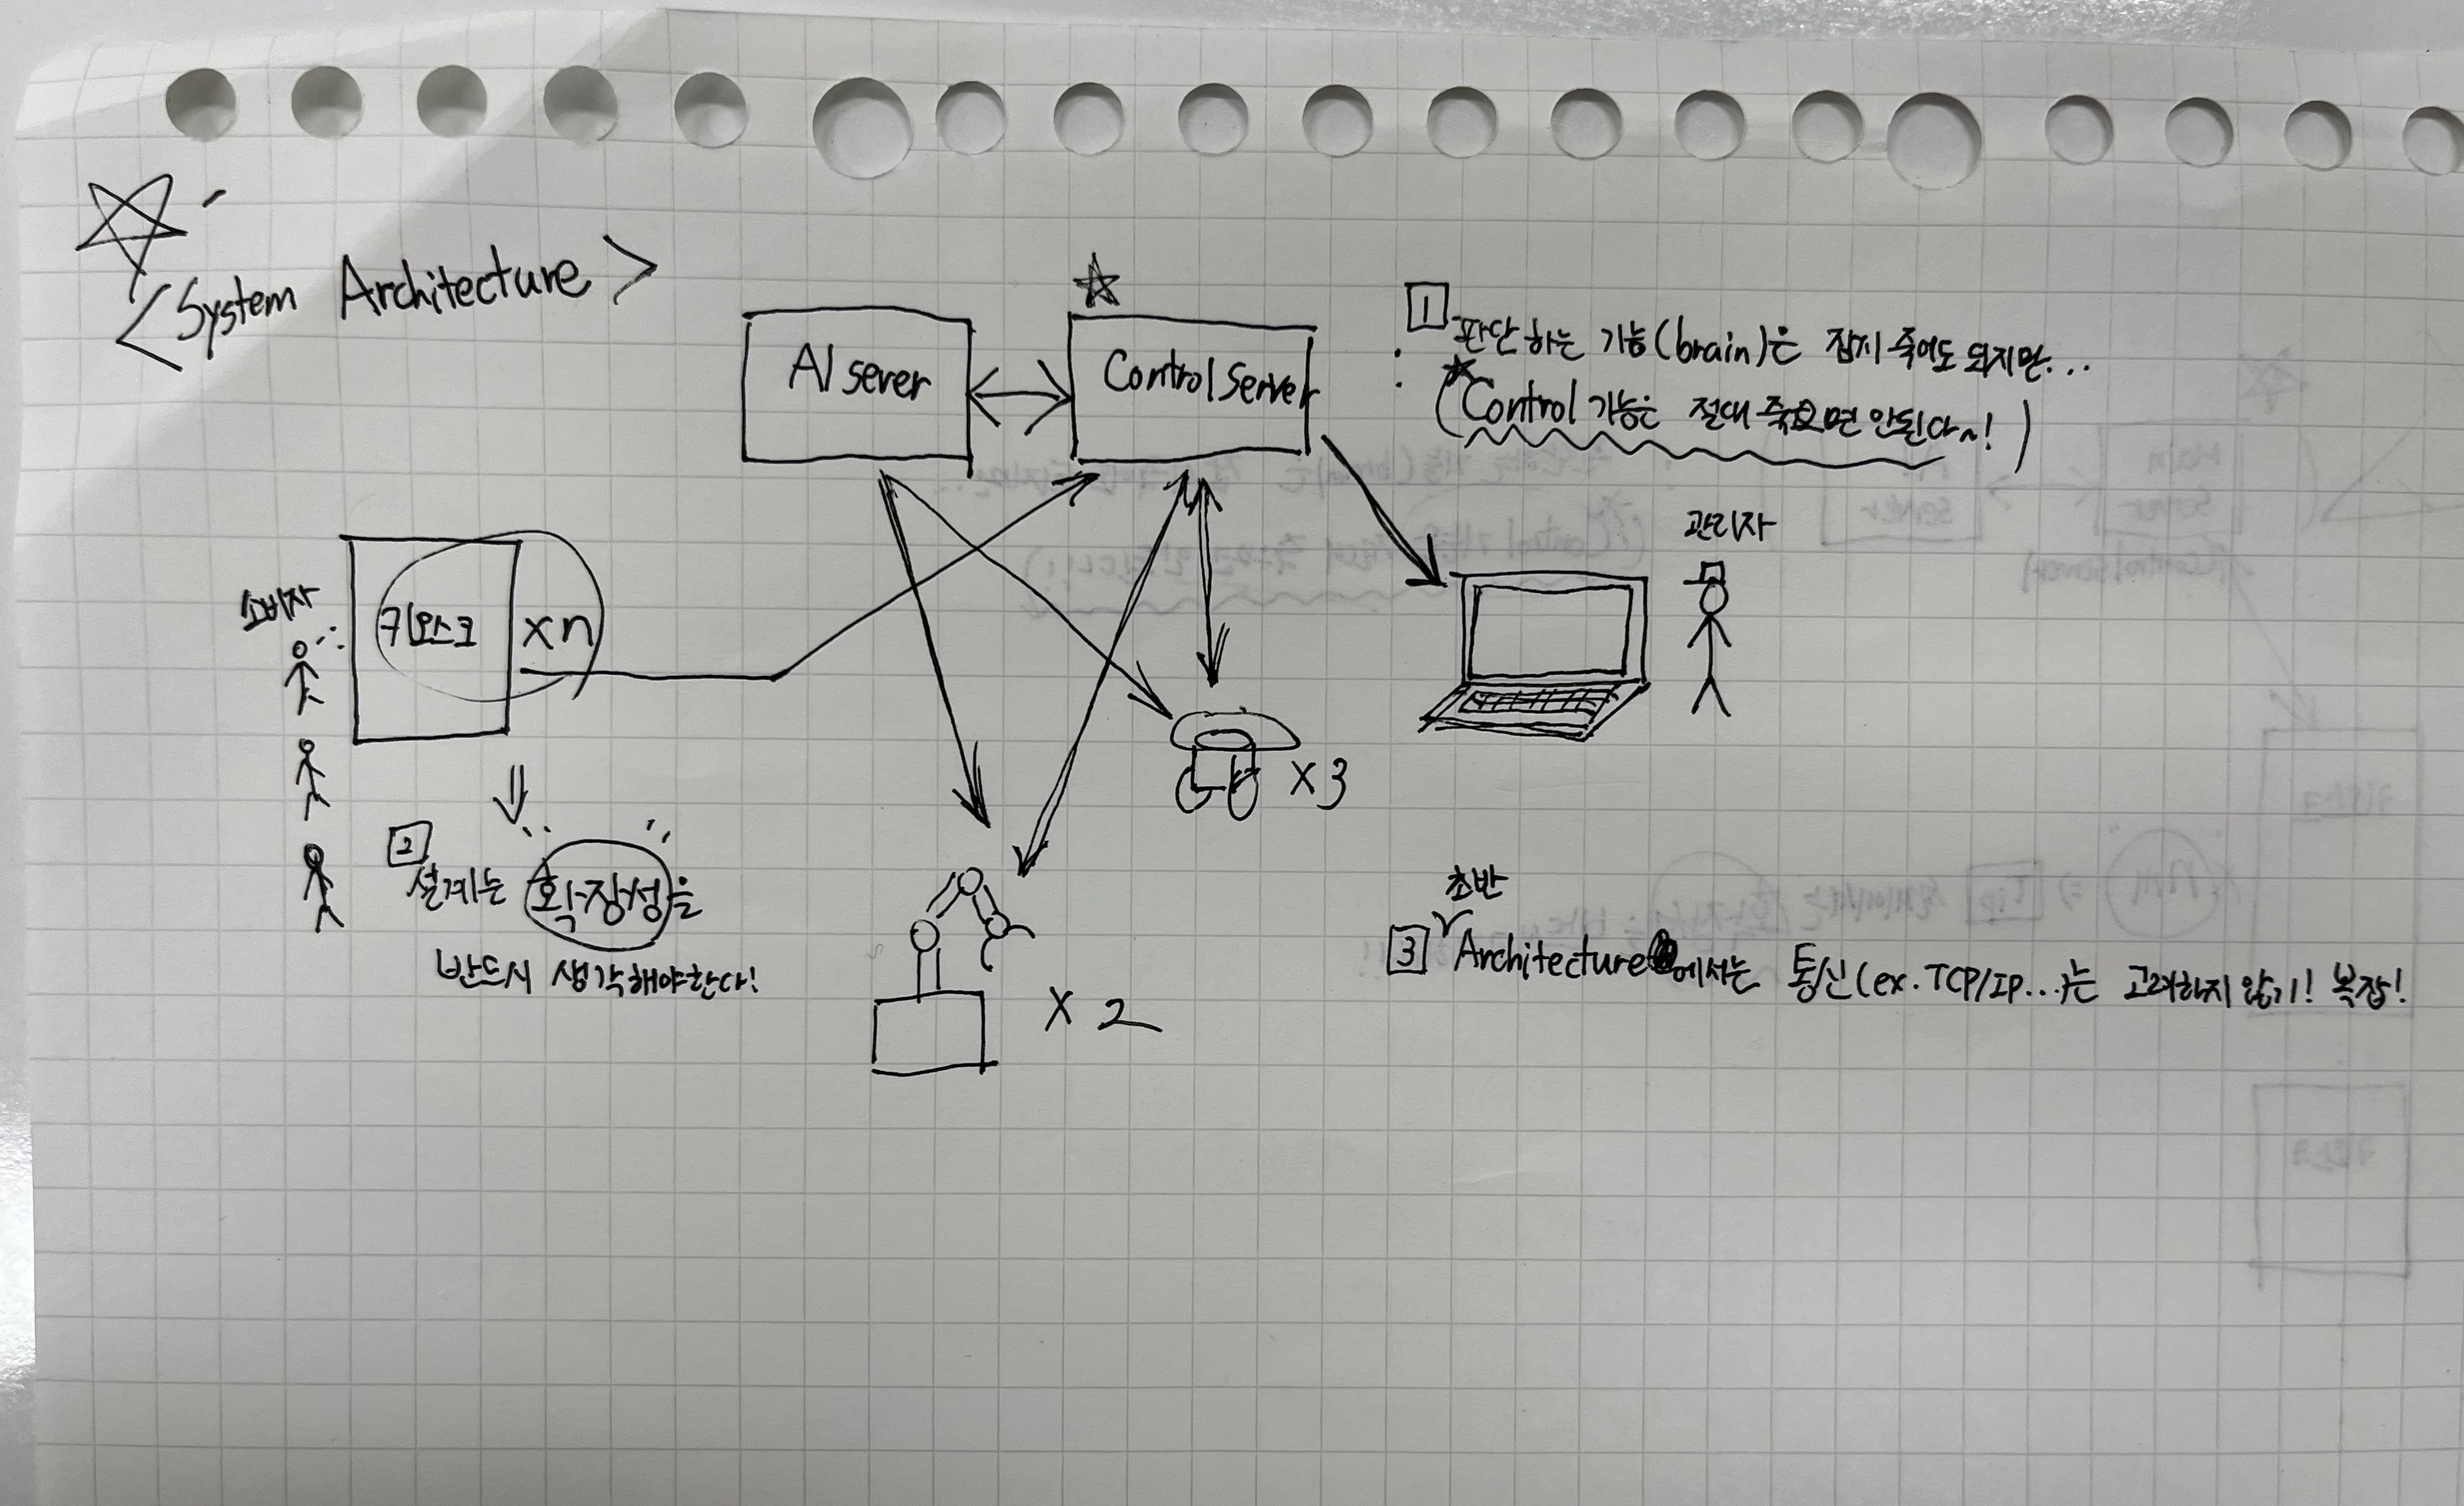 <System Architecture>
AI server
Control Server
1 판단하는 기능(brain)은 잠시 죽어도 되지만...
(Control 기능은 절대 죽으면 안된다~!)
관리자
소비자
키오스크
xn
x3
2 설계는 확장성을
반드시 생각해야한다!
x2
초반
3 Architecture에서는 통신(ex. TCP/IP...)는 고려하지 않기! 복잡!